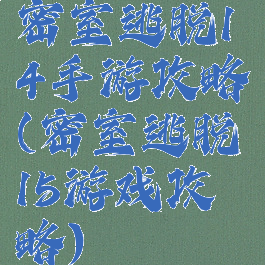 密室逃脱1
4手游攻略
(密室逃脱
15游戏攻
略)